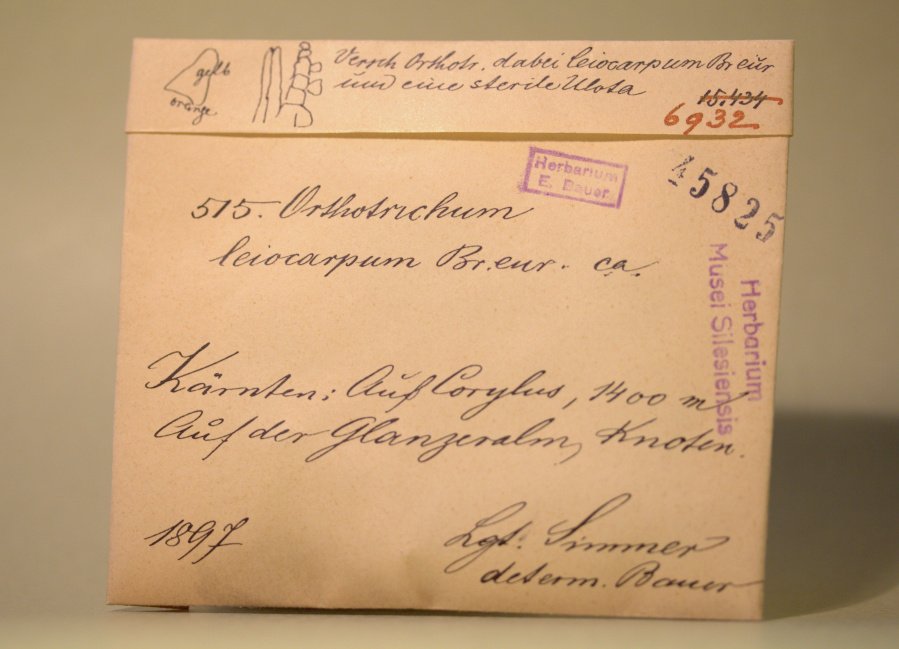 gelb
orange
Versch Orthotr. dabei leiocarpum Breur
und eine sterile Ulota
15.434
6932
Herbarium
E. Bauer
45825
515. Orthotrichum
leiocarpum Br.eur. ca.
Herbarium
Musei Silesiensis
Kärnten: Auf Corylus, 1400 m
Auf der Glanzeralm, Knoten.
1897
Lgt. Simmer
determ. Bauer